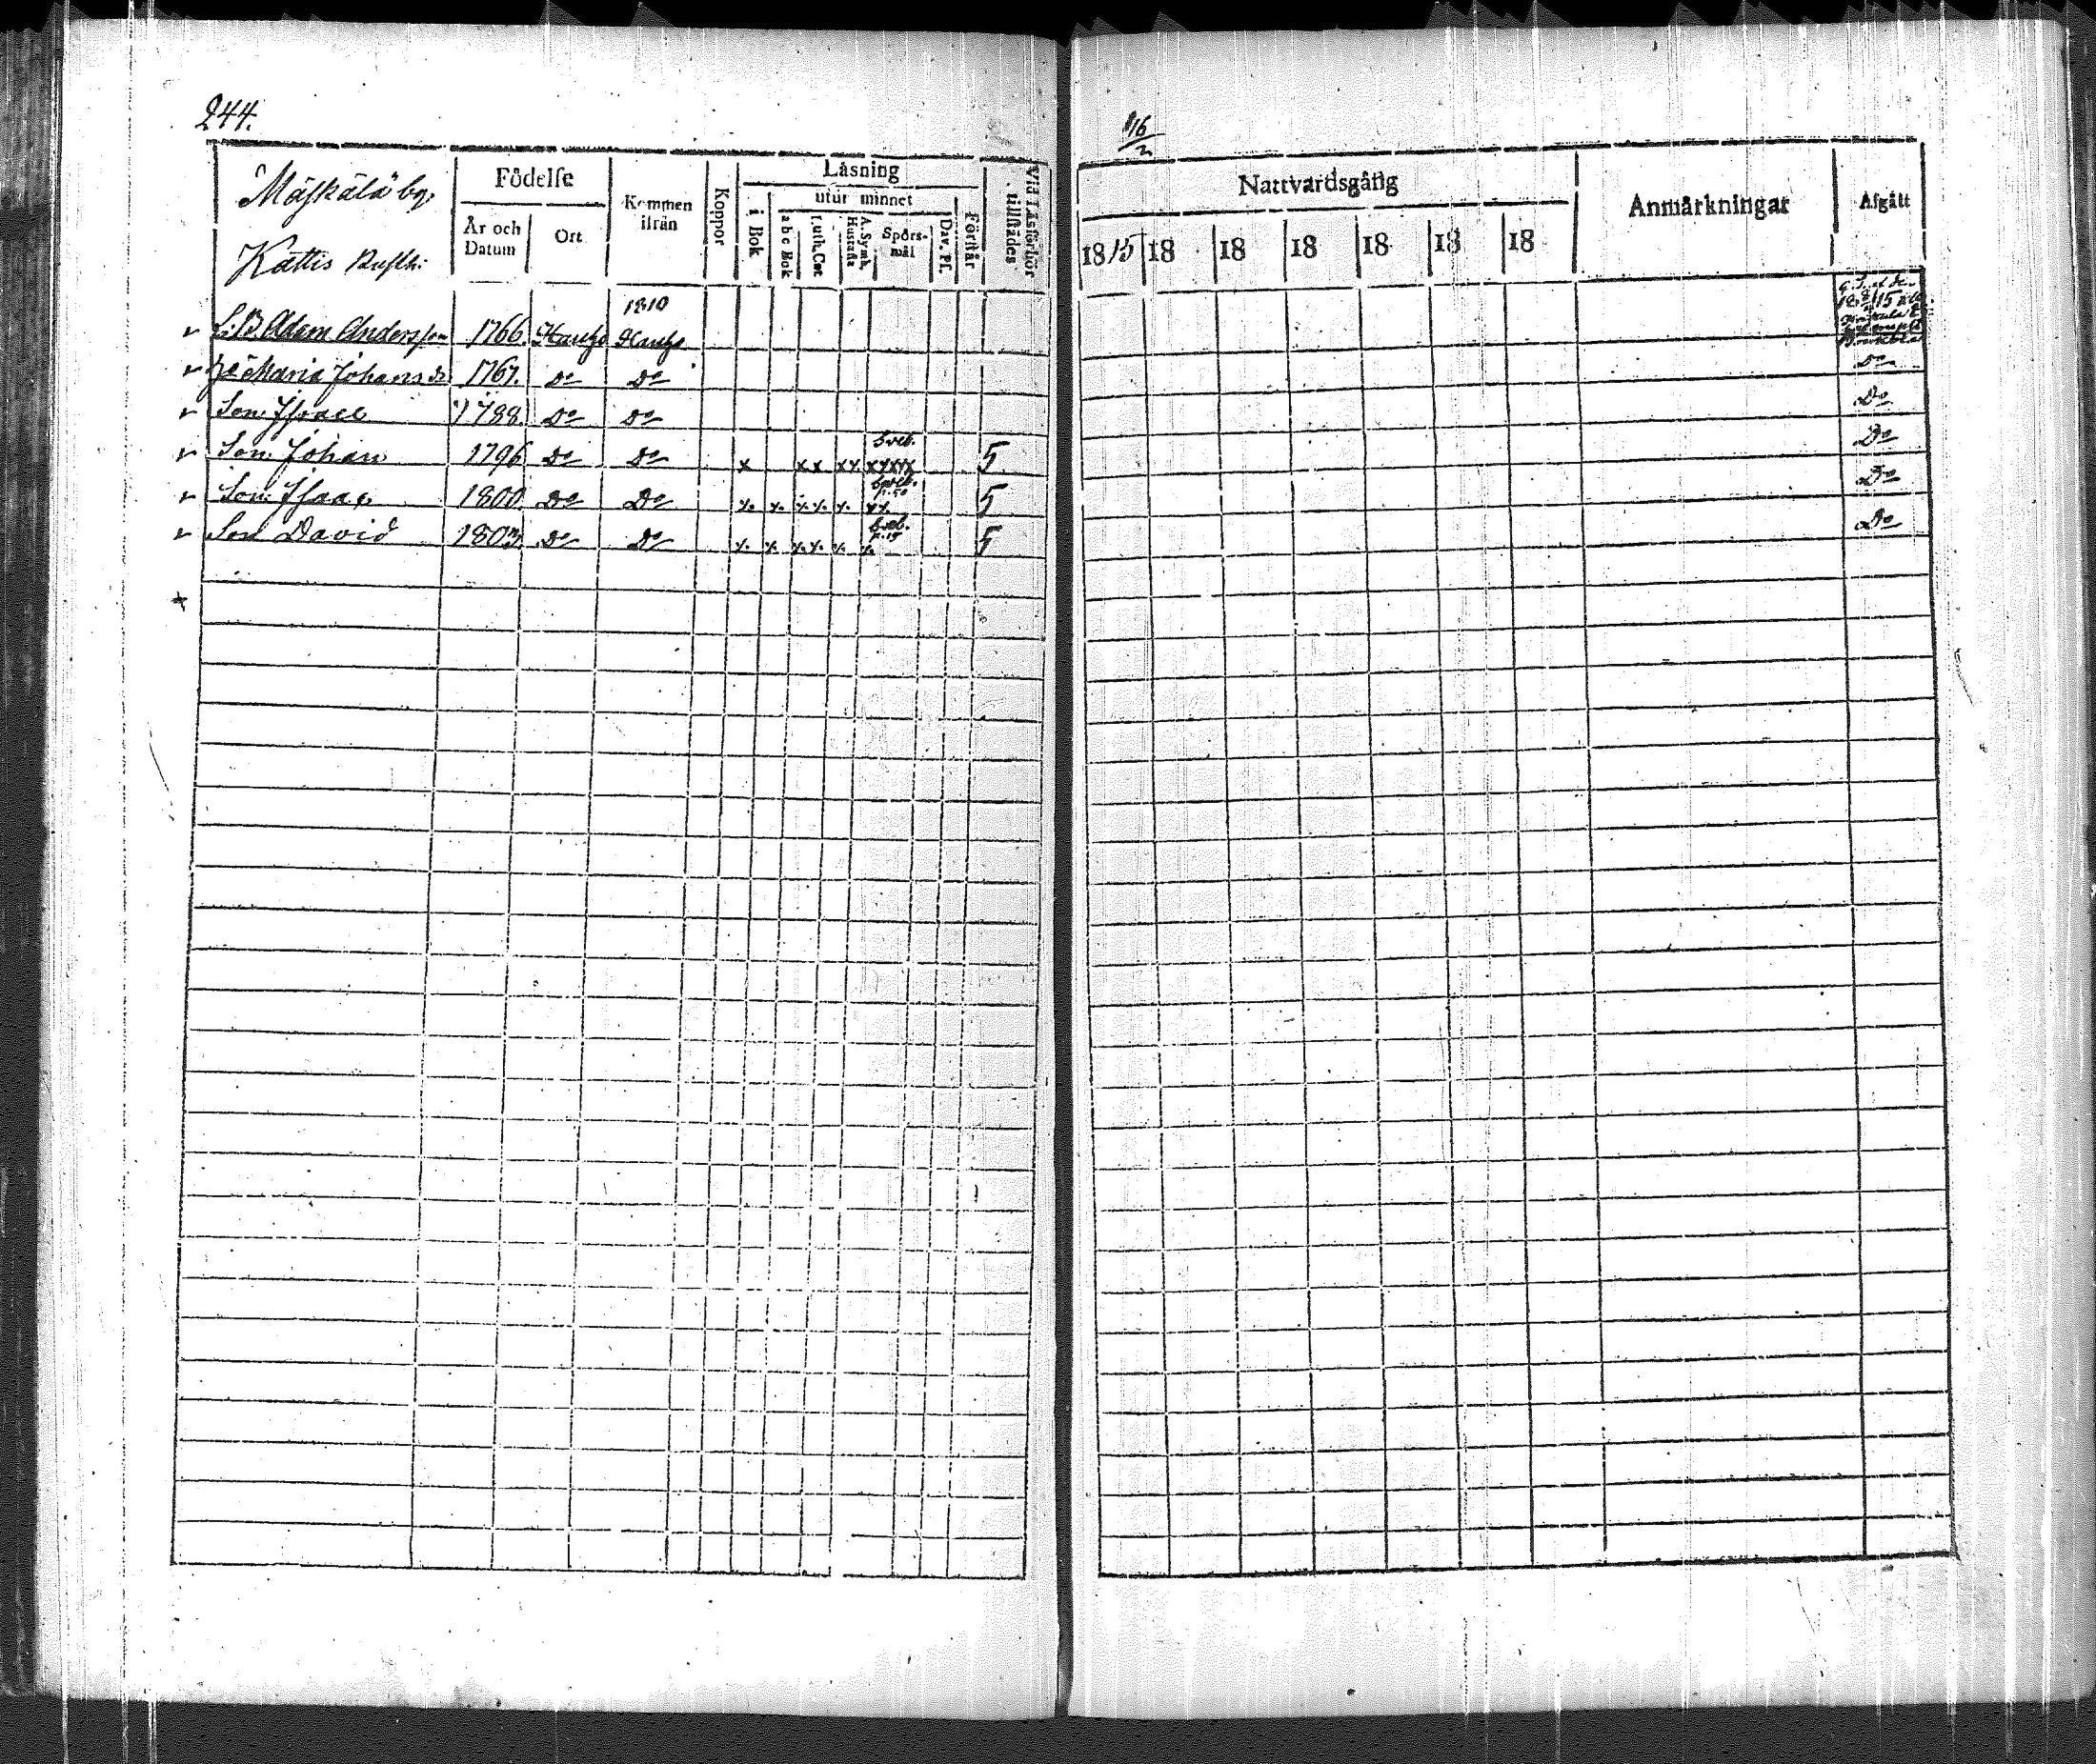 244.
116
Mäskälä by.
Kättis Rusth:
Födelse
Kommen ifrån
Koppor
Läsning
Vid Läsförhör tillstädes
År och Datum
Ort
i Bok
utur minnet
Förstår
a b c Bok
Luth. Cat
A. Symb. Hustafla
Spörs-mål
Dav. Ps.
Nattvardsgång
Anmärkningar
Afgått
18 15 18 18 18 18 18 18
1810
L:B. Adam Andersson 1766. Hauho Hauho
Maria Johans dr 1767. Do Do Do
Son 1788. Do Do Do
Son Johan 1796 Do Do x x x x x x x x x 5 Do
Son Isaac 1800. Do Do x x x x x x x 5 Do
Son David 1803. Do Do x x x x x x 5 Do